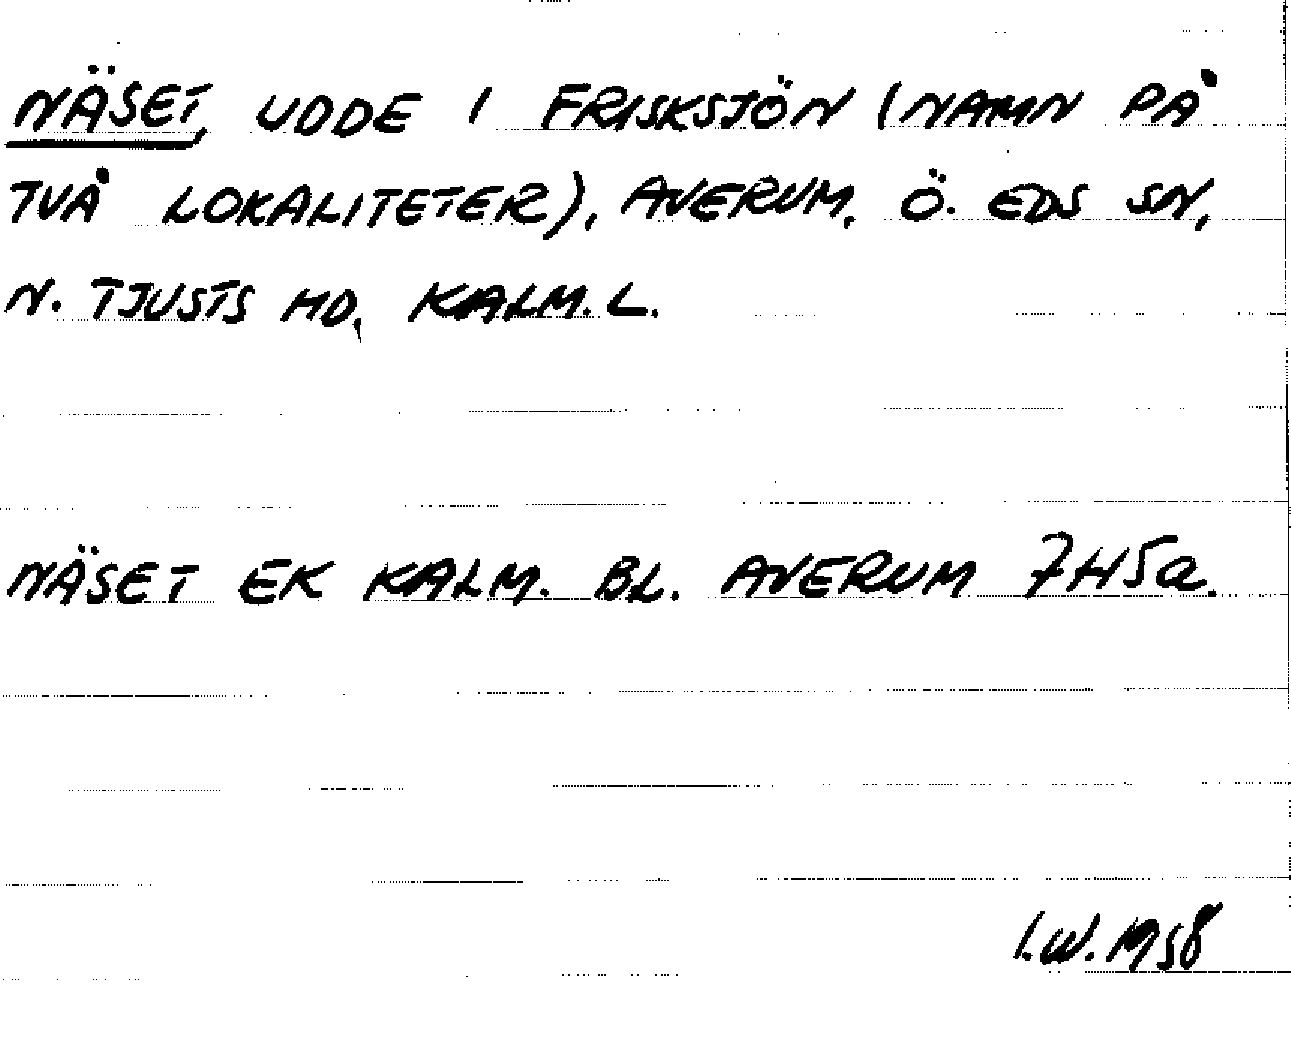 NÄSET, UDDE I FRISKSJÖN (NAMN PÅ
TVÅ LOKALITETER), AVERUM, Ö. EDS SN,
N. TJUSTS HD, KALM. L.
NÄSET EK KALM. BL. AVERUM 7H5a.
I.W. 1958